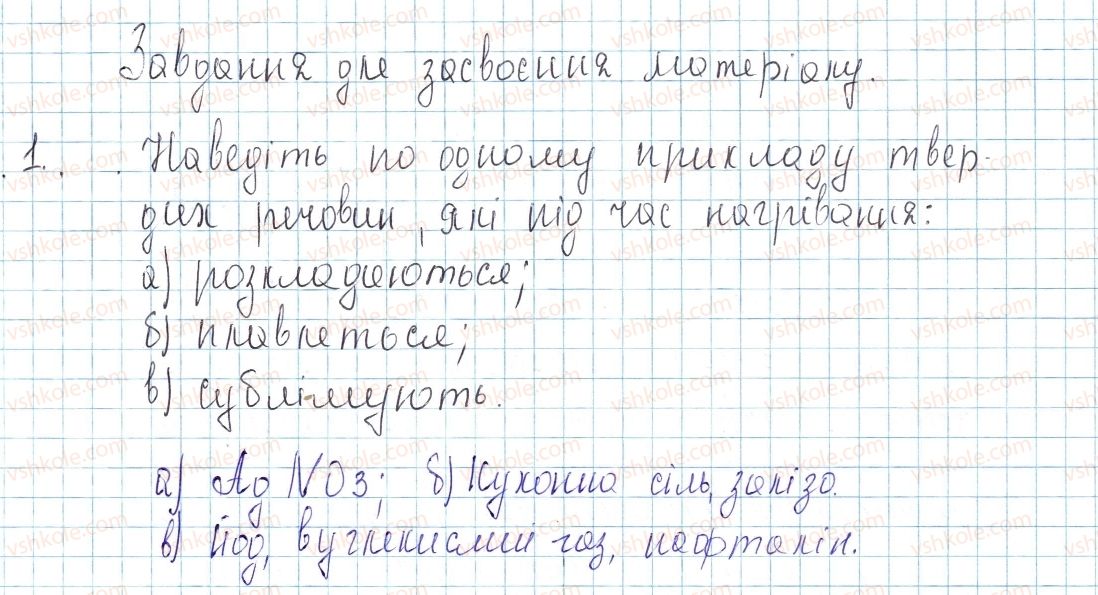 Завдання для засвоєння матеріалу.
1. Наведіть по одному прикладу твер-
дих речовин, які під час нагрівання:
а) розкладаються;
б) плавляться;
в) сублімують.
а) AgNO3; б) Кухонна сіль, залізо.
в) йод, вуглекислий газ, нафталін.